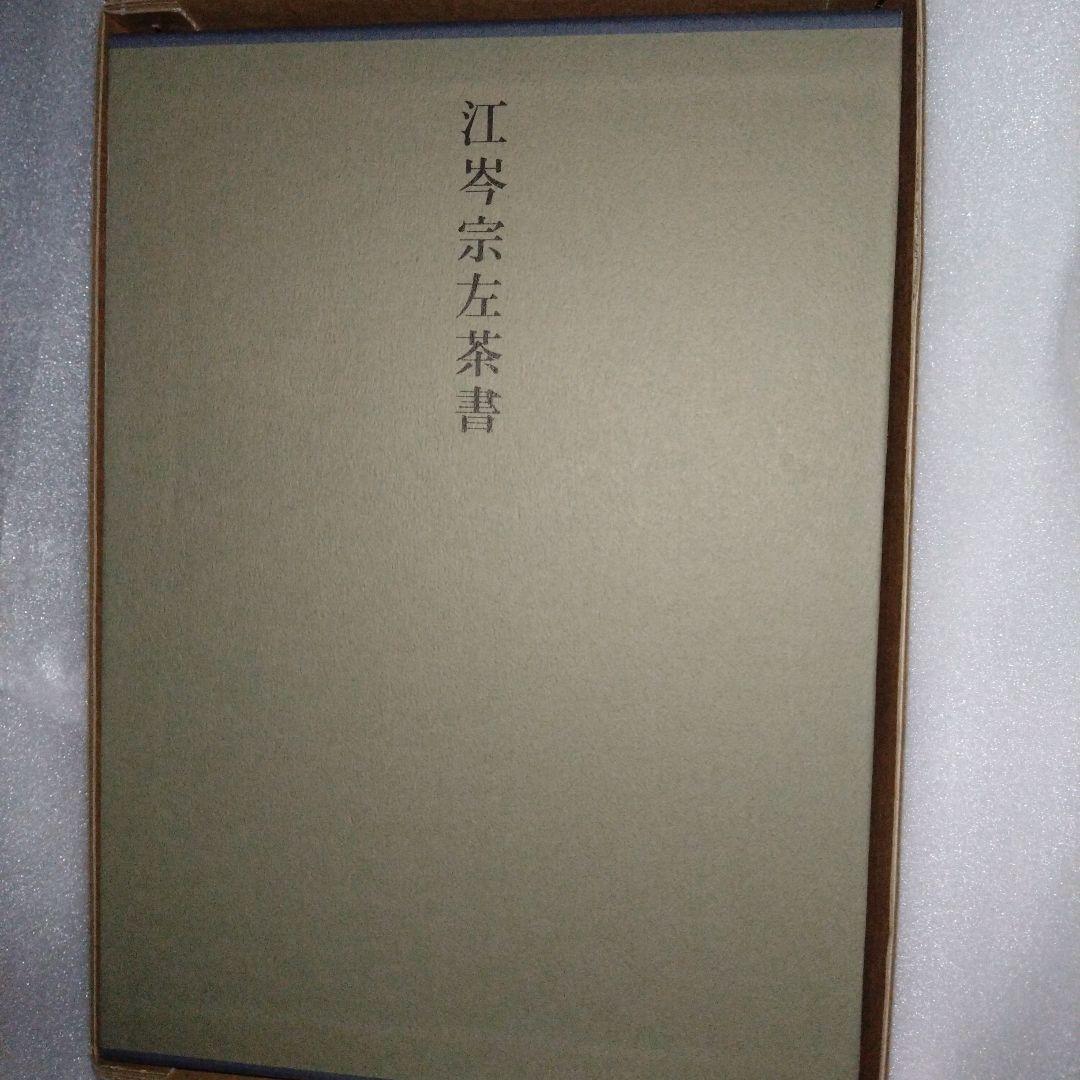 江岑宗左茶書